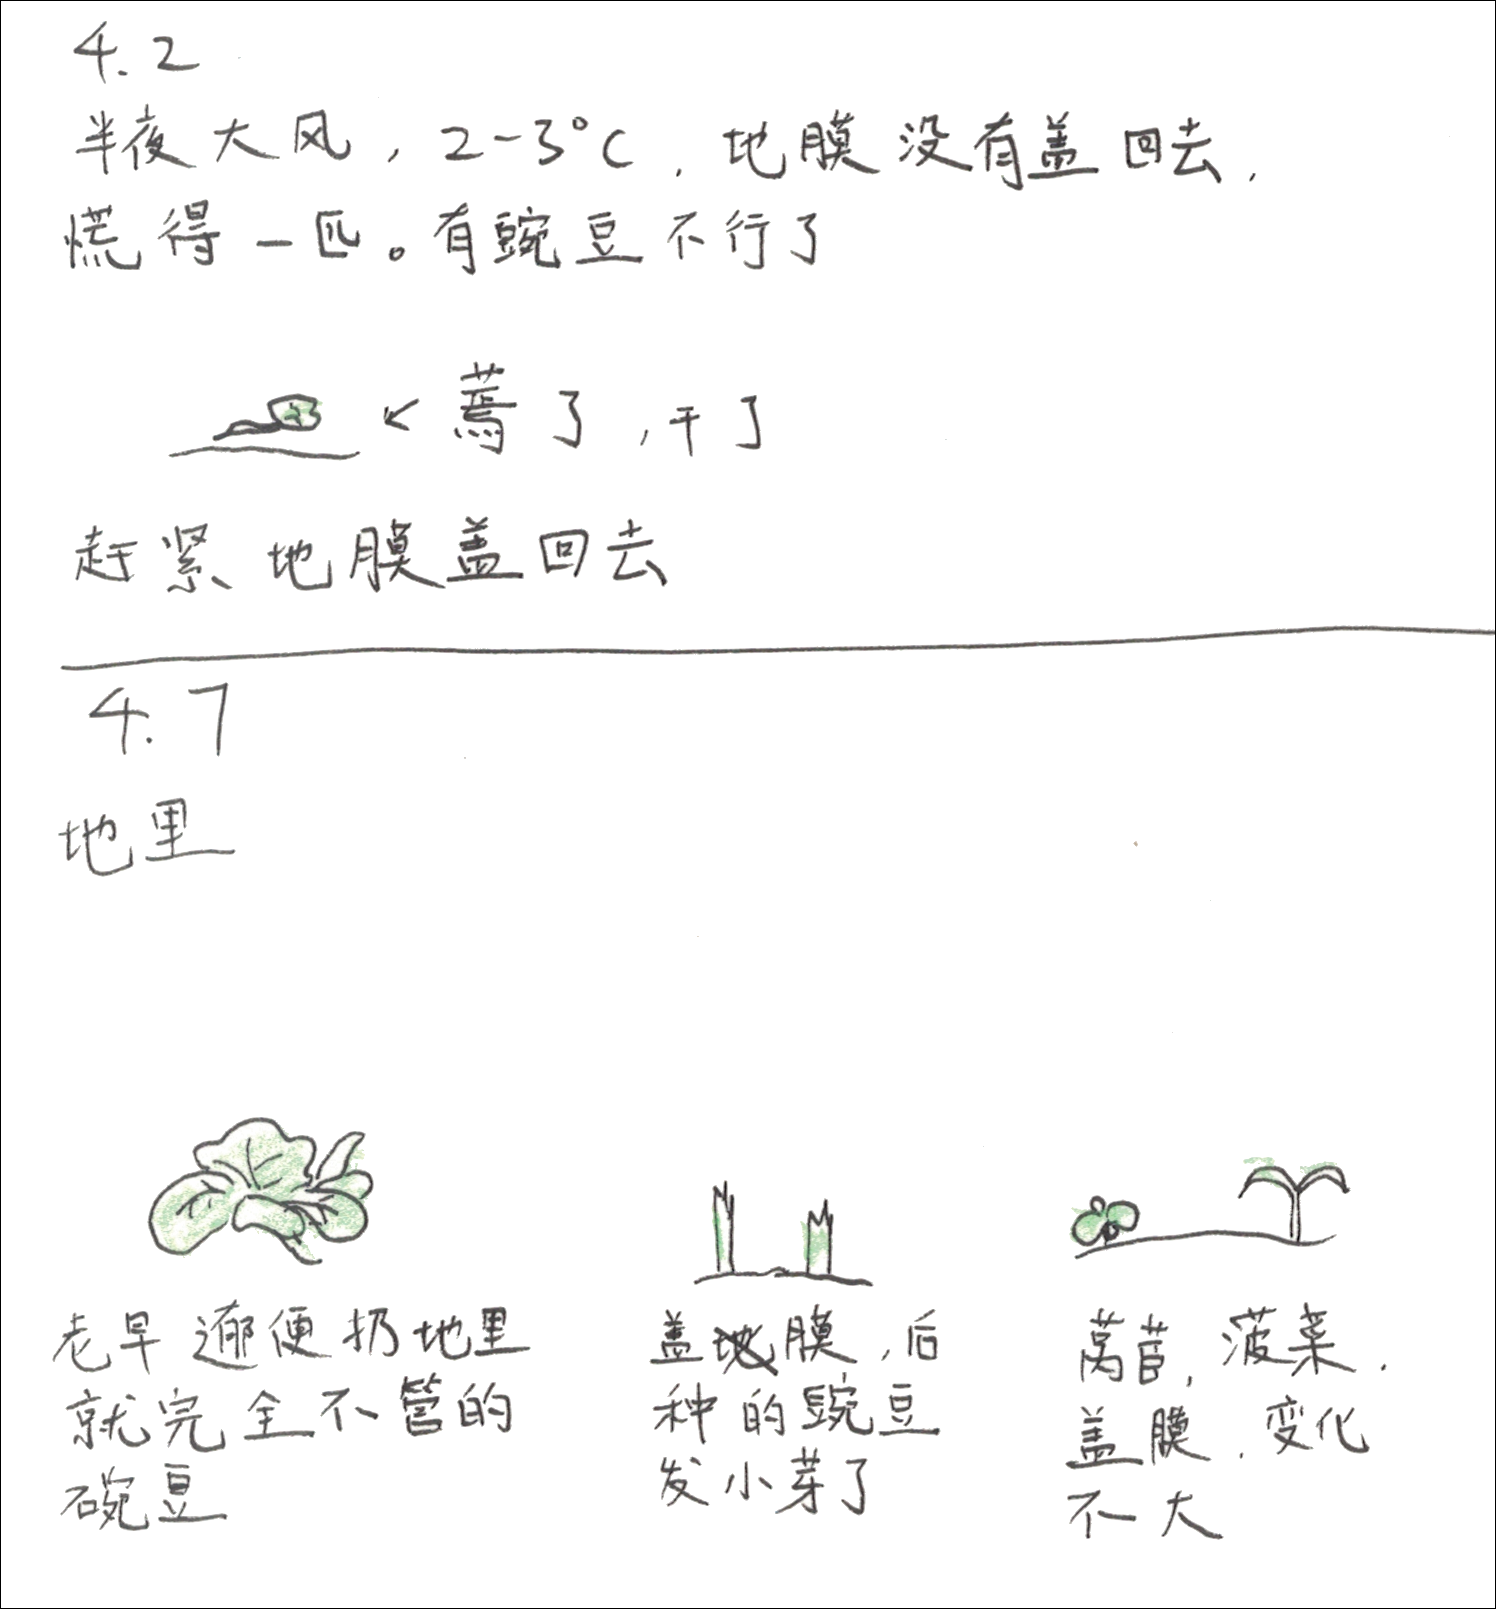 4.2
半夜大风，2-3°C，地膜没有盖回去，
慌得一匹。有豌豆不行了
蔫了，干了
赶紧地膜盖回去
4.7
地里
老早 便扔地里
就完全不管的
碗豆
盖膜，后
种的豌豆
发小芽了
莴苣，菠菜，
盖膜，变化
不大